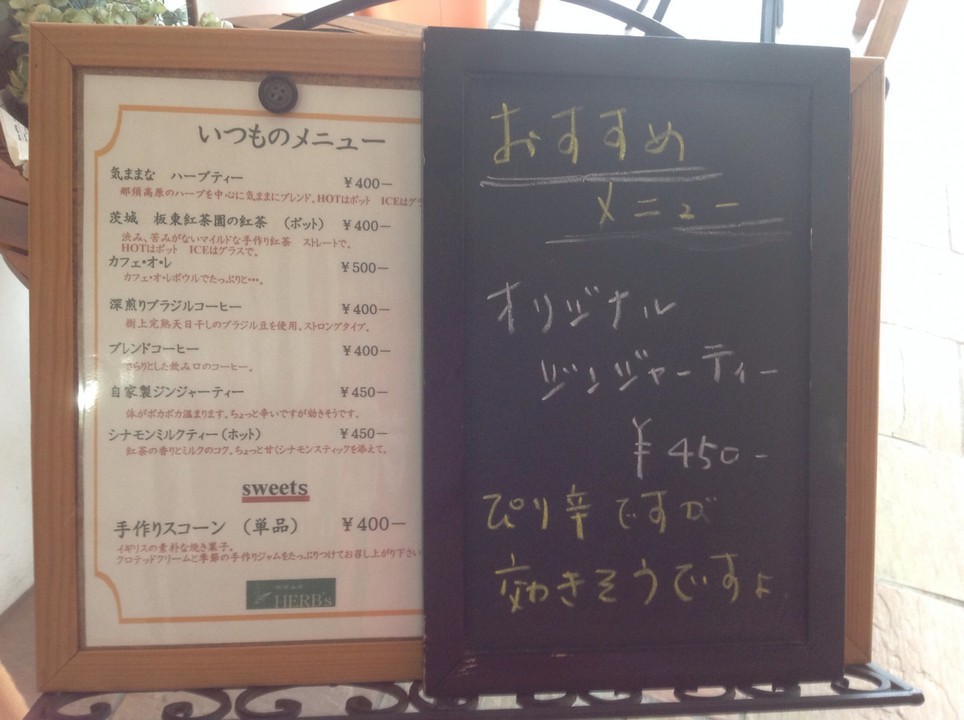 いつものメニュー
気ままな ハーブティー ¥400−
那須高原のハーブを中心に気ままにブレンド。HOTはポット ICEはグラ
茨城 板東紅茶園の紅茶 (ポット) ¥400−
渋み、苦みがないマイルドな手作り紅茶 ストレートで。
HOTはポット ICEはグラスで。
カフェ・オ・レ ¥500−
カフェ・オ・レボウルでたっぷりと・・・。
深煎りブラジルコーヒー ¥400−
樹上完熟天日干しのブラジル豆を使用。ストロングタイプ。
ブレンドコーヒー ¥400−
さらりとした飲み口のコーヒー。
自家製ジンジャーティー ¥450−
体がポカポカ温まります。ちょっと辛いですが効きそうです。
シナモンミルクティー(ホット) ¥450−
紅茶の香りとミルクのコク。ちょっと甘くシナモンスティックを添えて。
sweets
手作りスコーン (単品) ¥400−
イギリスの素朴な焼き菓子。
クロテッドクリームと季節の手作りジャムをたっぷりつけてお召し上がり下さい
HERB's
おすすめ
メニュー
オリジナル
ジンジャーティー
¥450−
ぴり辛ですが
効きそうですよ